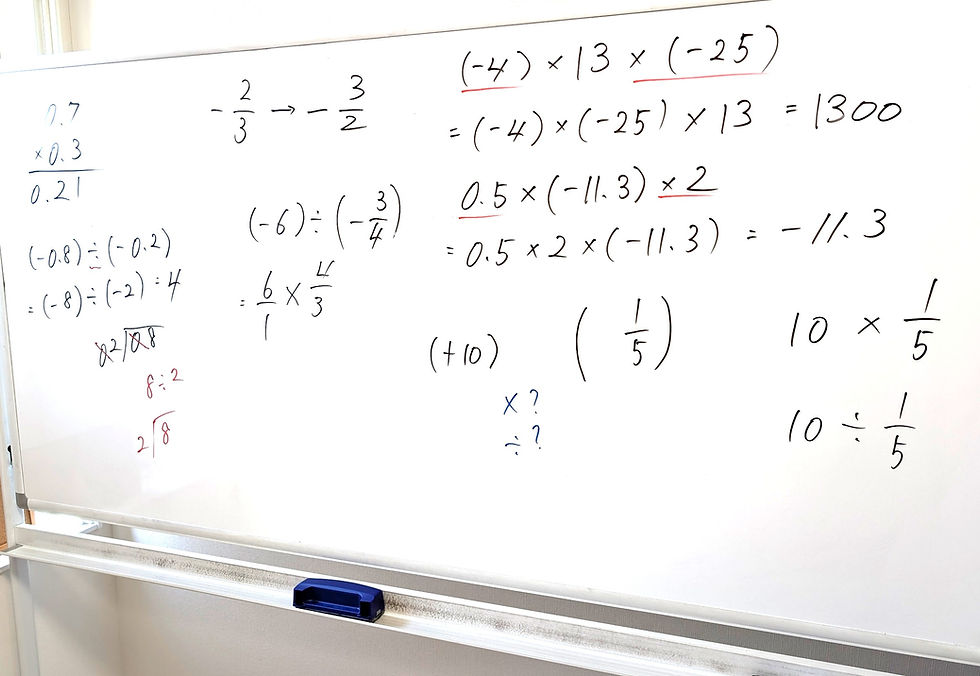 0.7
×0.3
0.21
(-0.8)÷(-0.2)
=(-8)÷(-2)=4
02/08
8÷2
2/8
-2/3→-3/2
(-6)÷(-3/4)
=6/1×4/3
(-4)×13×(-25)
=(-4)×(-25)×13=1300
0.5×(-11.3)×2
=0.5×2×(-11.3)=-11.3
(+10) (1/5)
×?
÷?
10×1/5
10÷1/5